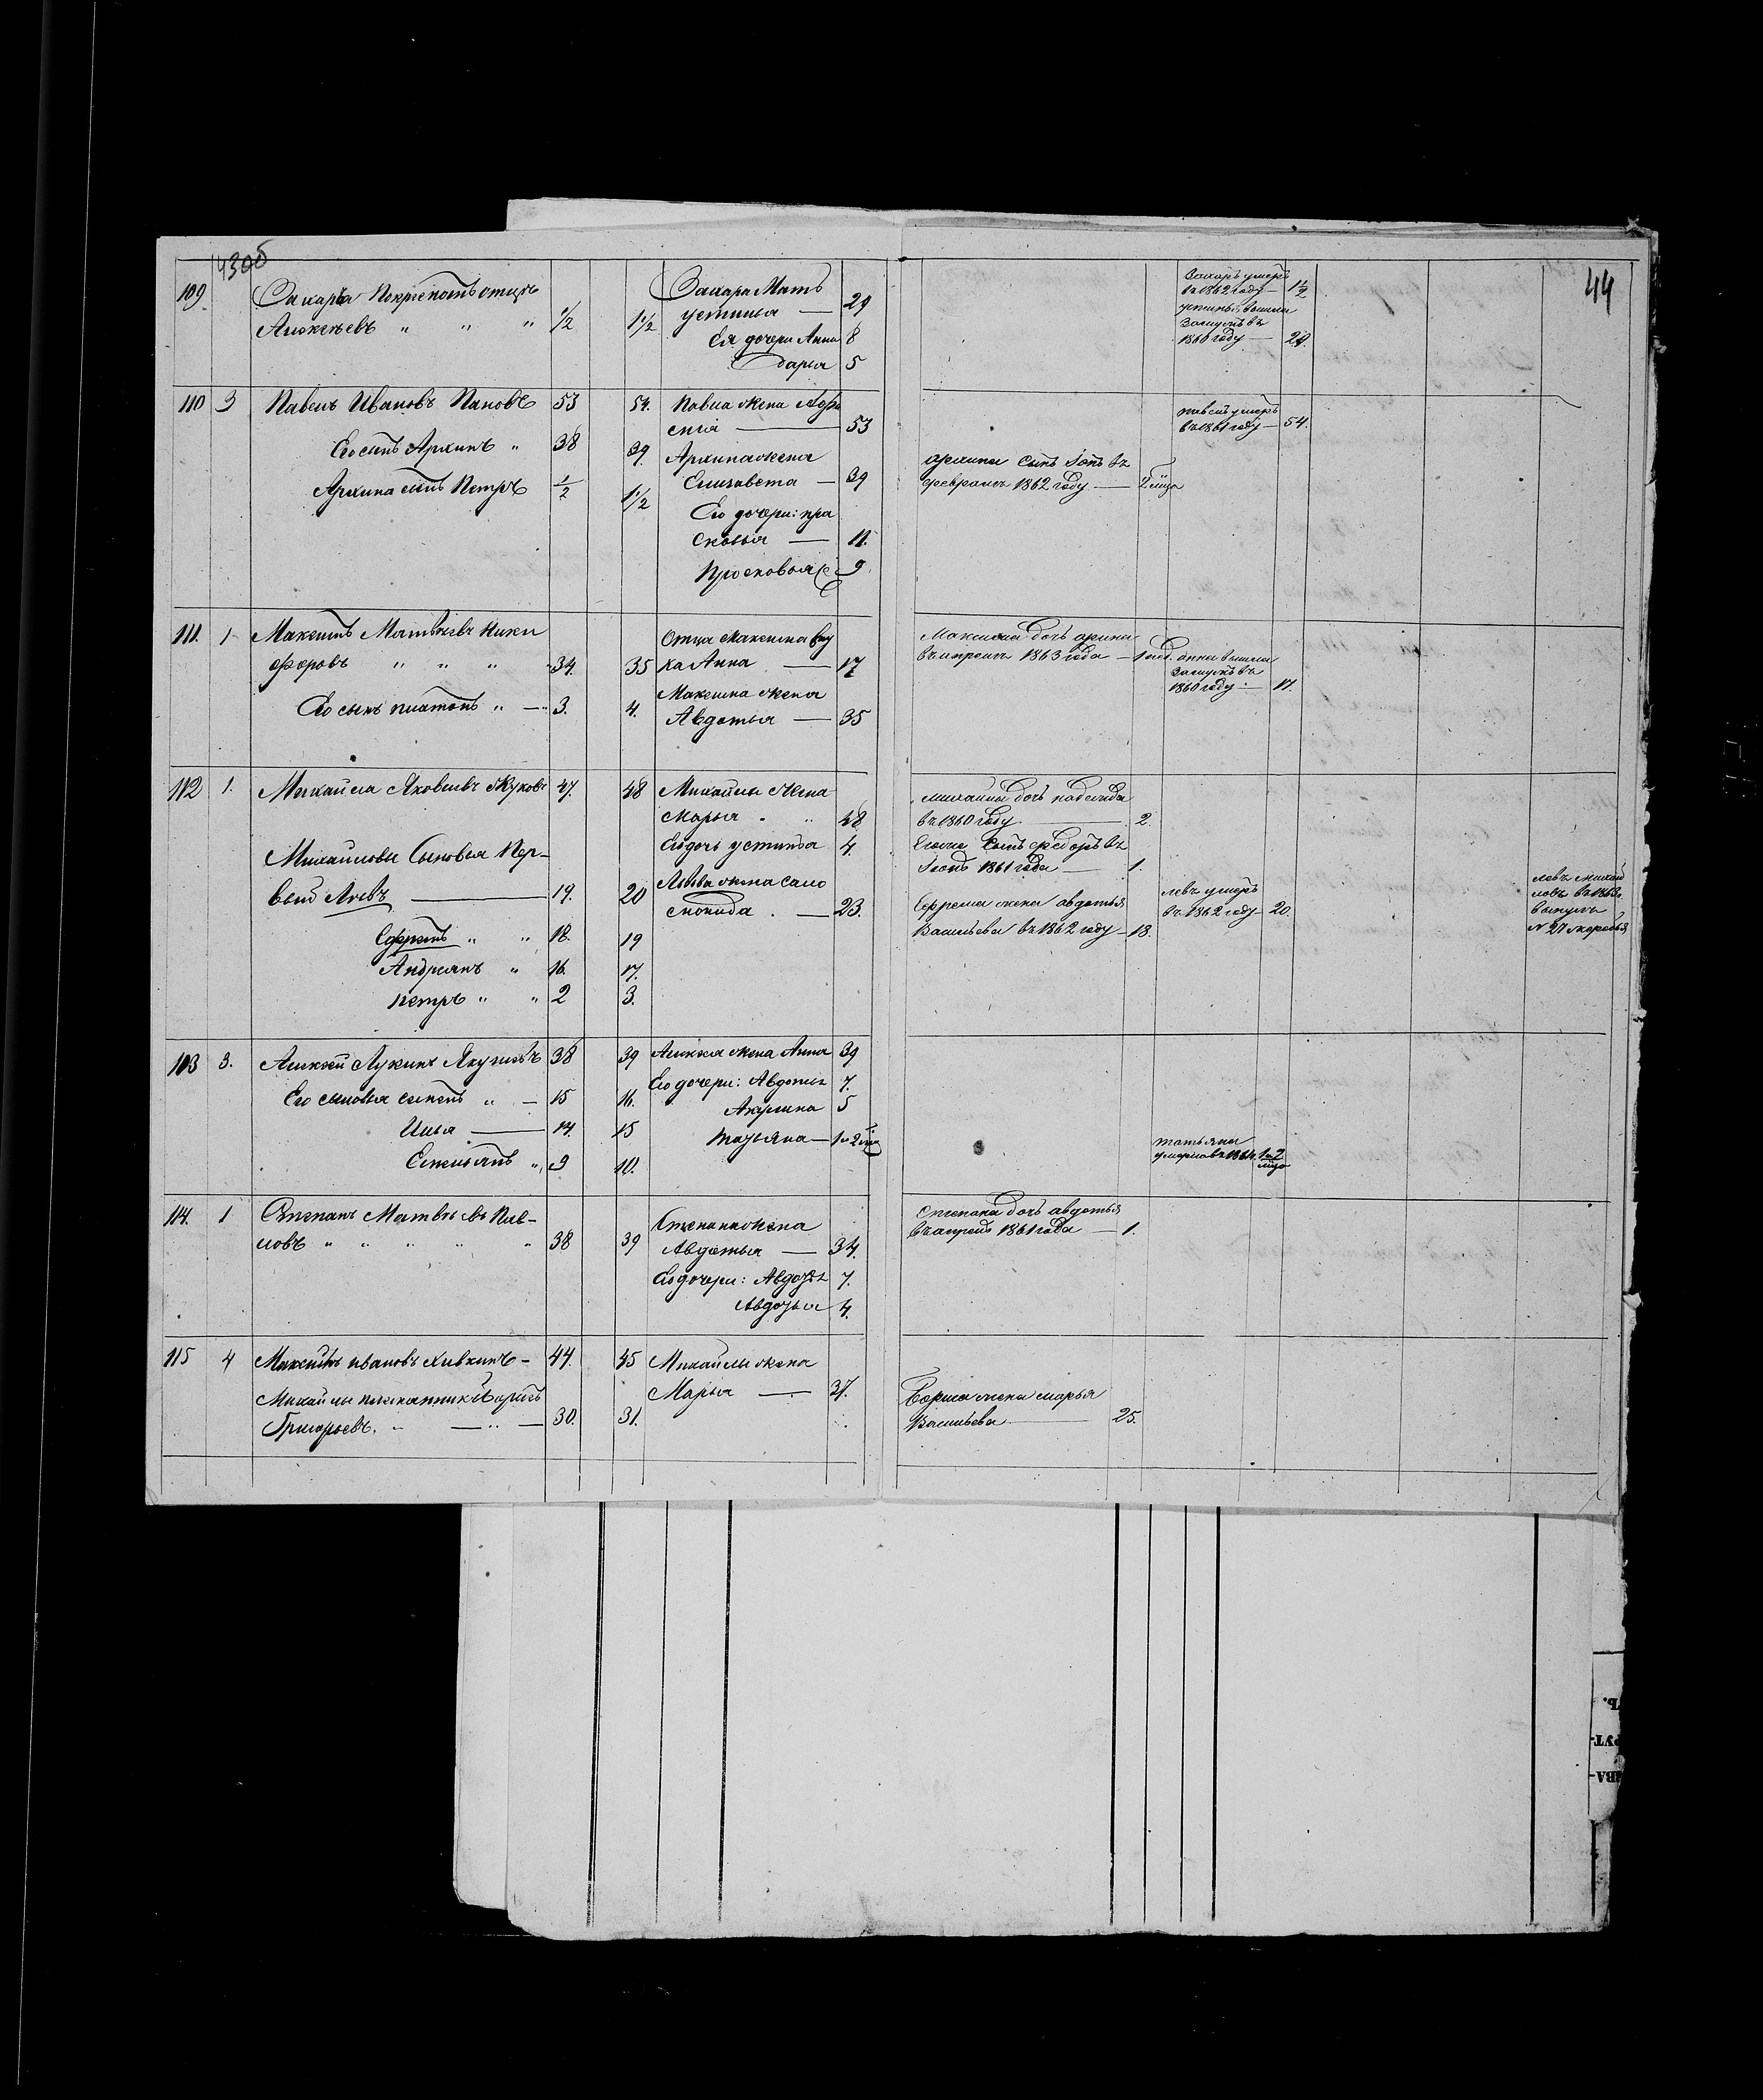 4300б
44
109 Захаръ Покрѣпость отцтв
Алексѣевъ " " " 1/2 1 1/2
Захара Мать
устинья — 29
Ея дочери Анна 8
дарья 5
Захаръ умеръ
въ 1862 году — 1 1/2
устинья вышла
Замужъ въ
1860 году — 29.
110 3 Павелъ Ивановъ Пановъ 53 54.
Его сынъ Архипъ " 38 39.
Архипа сынъ Петръ 1/2 1 1/2
Павла жена Афи
сья — 53
Архипа жена
Елизавета — 39
Его дочери: пра
сковья — 11.
Просковья 9
архипа сынъ
февраль 1862 году — 2 мца
павелъ умеръ
въ 1861 году — 54.
111. 1 Максимъ Матвѣевъ Ники
форовъ " " " 34. 35
Его сынъ платонъ " — 3. 4.
Отца Максима вну
ка Анна — 17
Максима жена
Авдотья — 35
Максима дочь арина
въ апрель 1863 года — 1
анна вышла
Замужъ въ
1860 году — 17.
112 1. Михайла Яковлевъ Жуковъ 47. 48
Михайловы Сыновья Пер-
вый Левъ — 19. 20
Ефремъ " " 18. 19
Андриянъ " 16. 17.
петръ " " 2 3.
Михайлы жена
Марья " 48
Его дочь устинья 4.
Львова жена Соло
— 23.
михайлы дочь надежда
въ 1860 году — 2.
сынъ федоръ въ
1861 года — 1.
Ефрема жена авдотья
Васильева въ 1862 году — 18.
левъ умеръ
въ 1862 году — 20.
левъ михай
ловъ въ 1863
№ 27 жеребья
113 3. Алексѣй Лукинъ Якушевъ 38 39
Его сыновья семенъ " — 15 16.
Илья — 14. 15
Емельянъ " 9 10.
Алексѣя жена Анна 39
Его дочери: Авдотья 7.
Акулина 5
татьяна — 1 и 2 мца
татьяна
умерла въ 1861 г. 1 и 2 мца
114. 1 Степанъ Матвѣевъ Пав-
ловъ " " " " " 38 39
Степана жена
Авдотья — 34.
Его дочери: Авдотья 7.
Авдотья 4.
Степана дочь авдотья
въ апрель 1861 года — 1.
115 4 Максимъ ивановъ Хивкинъ — 44. 45
Михайлы племянникъ борисъ
Григорьевъ. — 30. 31.
Михайлы жена
Марья — 37.
Бориса жена марья
Васильева — 25.
Ъ.
РУТ-
ІВА-